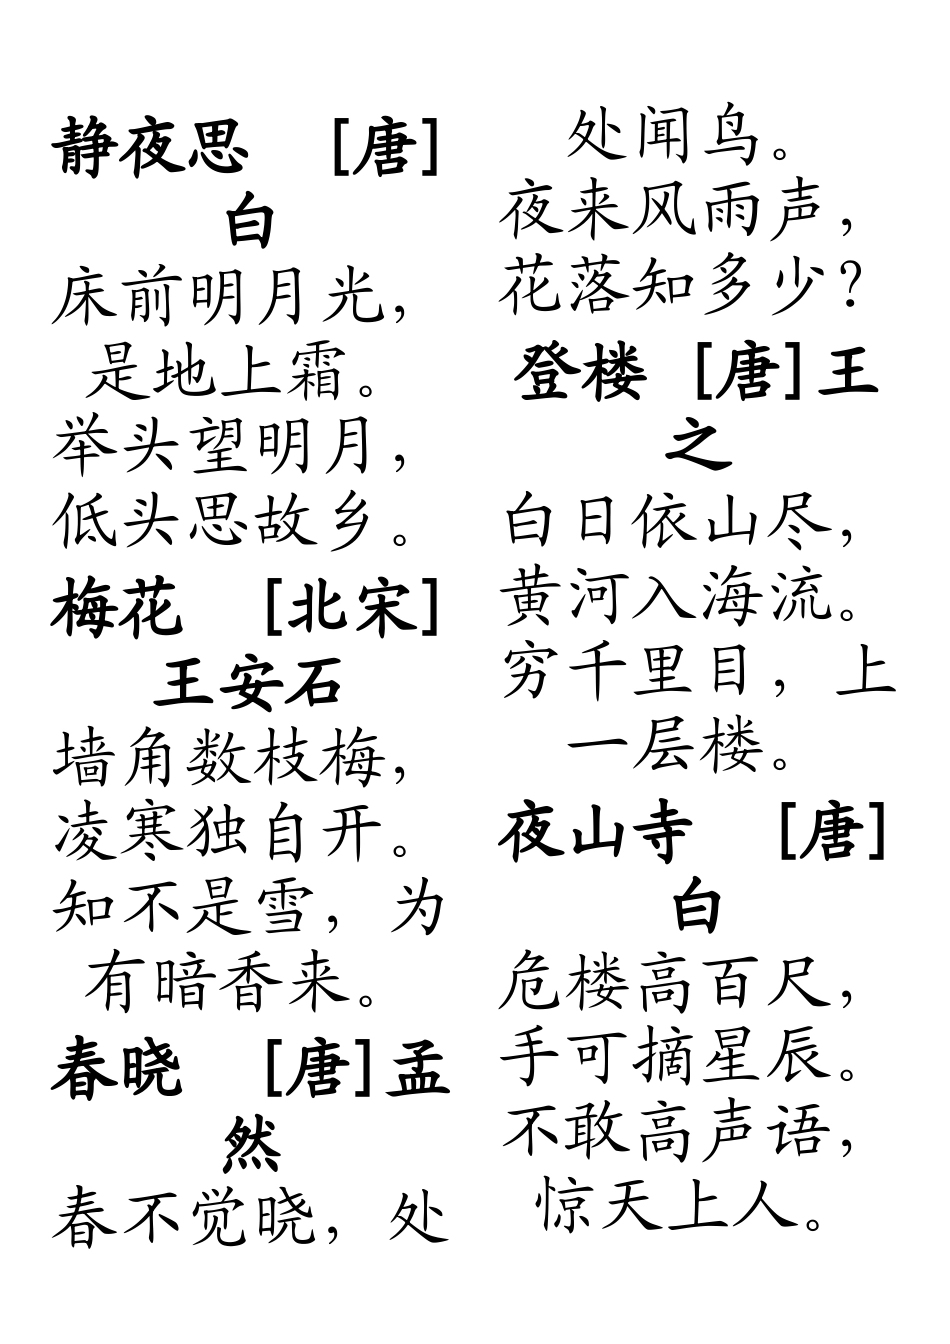 静夜思 [唐]
白
床前明月光，
是地上霜。
举头望明月，
低头思故乡。
梅花 [北宋]
王安石
墙角数枝梅，
凌寒独自开。
知不是雪，为
有暗香来。
春晓 [唐]孟
然
春不觉晓，处
处闻鸟。
夜来风雨声，
花落知多少？
登楼 [唐]王
之
白日依山尽，
黄河入海流。
穷千里目，上
一层楼。
夜山寺 [唐]
白
危楼高百尺，
手可摘星辰。
不敢高声语，
惊天上人。